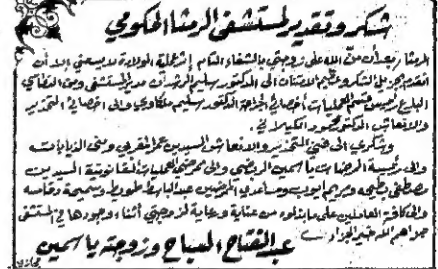 شكر وتقدير لمستشفى الرمثا الحكومي
الرمثا - بعد أن منّ الله على زوجتي بالشفاء التام إثر عملية الولادة لا يسعني إلا أن
أتقدم بجزيل الشكر وعظيم الامتنان إلى الدكتور سليم الرشدان مدير المستشفى ومن النطاسي
البارع رئيس قسم العمليات أخصائي الجراحة الدكتور سليم ملكاوي وإلى أخصائي التخدير
والإنعاش الدكتور محمود الكيلاني
وشكري إلى فنيي التخدير والإنعاش السيدين عمر القرعي ومنى الذيابات
وإلى رئيسة الممرضات ياسمين الربضي وإلى ممرضي العمليات القانونية السيدين
مصطفى بطيحه ومريم أيوب ومساعدي الممرضين عبد الباسط طويط وسميحة دقامسه
وإلى كافة العاملين على ما بذلوه من عناية ورعاية لزوجتي أثناء وجودها في المستشفى
جزاهم الله خير الجزاء
عبد الفتاح السباح وزوجته ياسمين